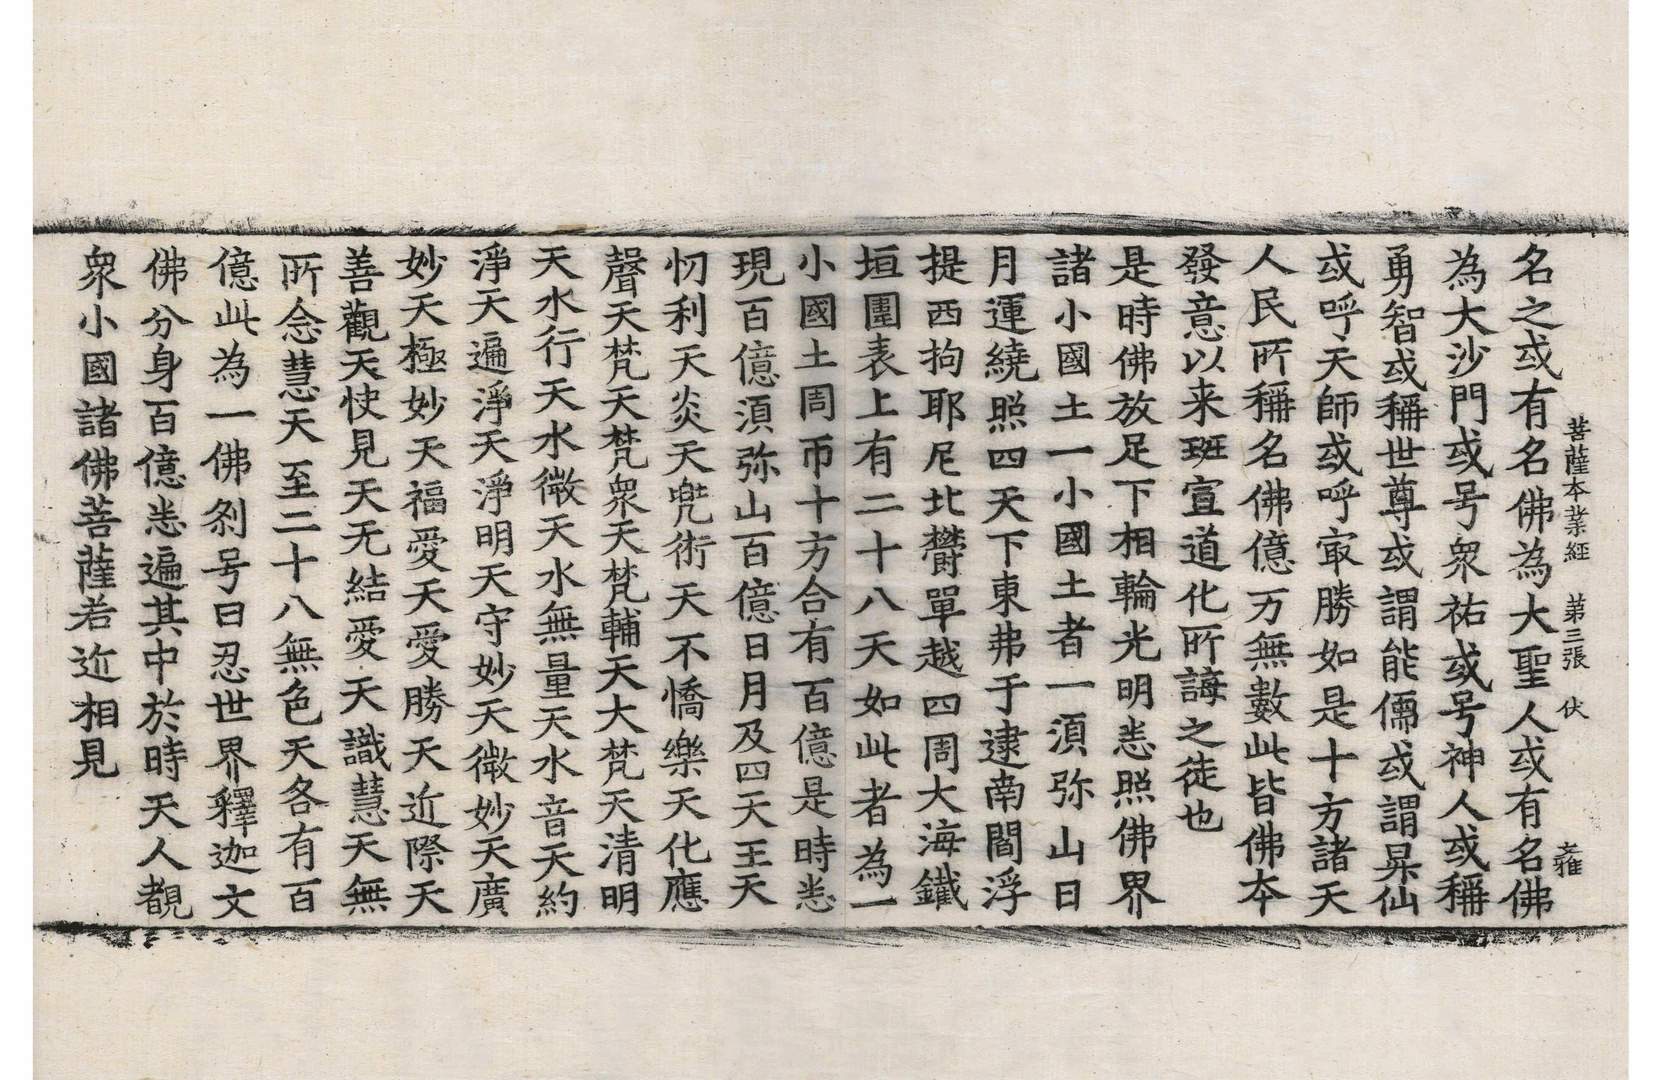 菩薩本業經 第三張 伏
雍
名之或有名佛為大聖人或有名佛
為大沙門或号衆祐或号神人或稱
勇智或稱世尊或謂能儒或謂昇仙
或呼天師或呼㝡勝如是十方諸天
人民所稱名佛億万無數此皆佛本
發意以来班宣道化所誨之徒也
是時佛放足下相輪光明悉照佛界
諸小國土一小國土者一須弥山日
月運繞照四天下東弗于逮南閻浮
提西拘耶尼北欝單越四周大海鐵
垣圍表上有二十八天如此者為一
小國土周帀十方合有百億是時悉
現百億須弥山百億日月及四天王天
忉利天炎天兜術天不憍樂天化應
聲天梵天梵衆天梵輔天大梵天清明
天水行天水微天水無量天水音天約
淨天遍淨天淨明天守妙天微妙天廣
妙天極妙天福愛天愛勝天近際天
善觀天快見天无結愛天識慧天無
所念慧天至二十八無色天各有百
億此為一佛刹号曰忍世界釋迦文
佛分身百億悉遍其中於時天人覩
衆小國諸佛菩薩若近相見